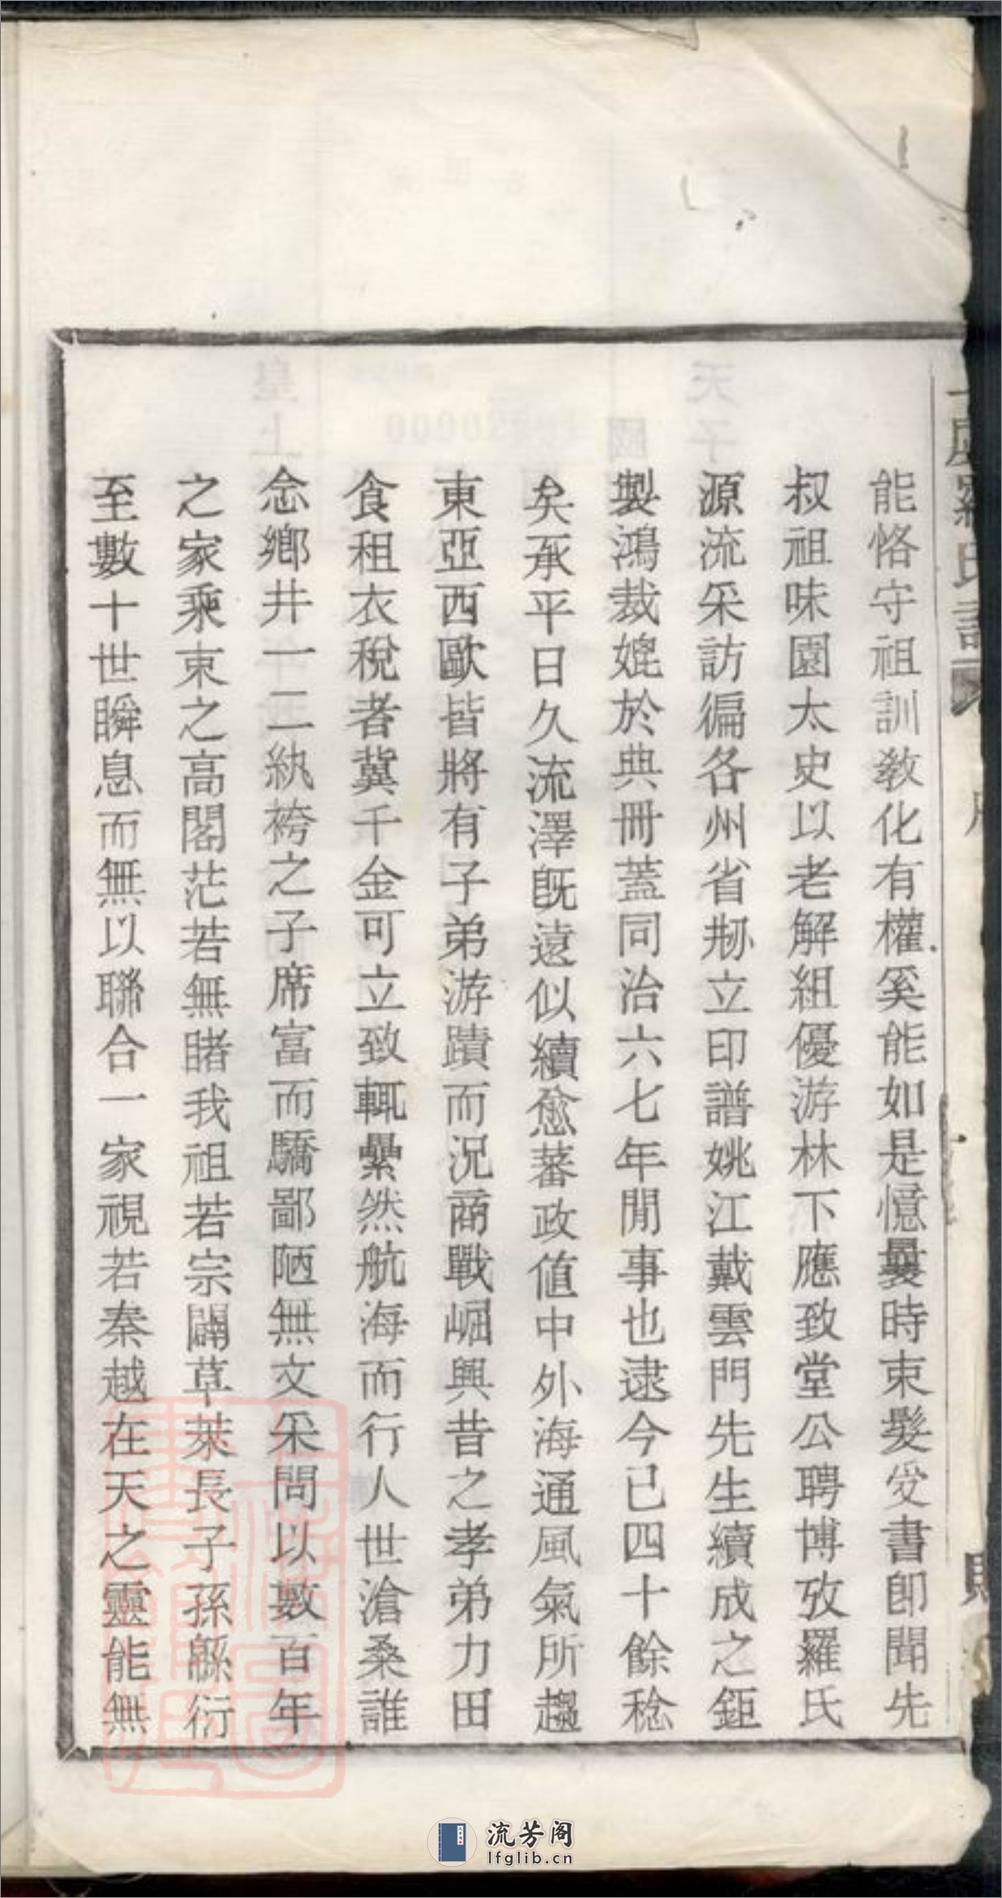 能恪守祖訓敎化有權奚能如是憶曩時束髮受書卽聞先
叔祖味園太史以老解組優游林下應致堂公聘博攷羅氏
源流采訪徧各州省刱立印譜姚江戴雲門先生續成之鉅
製鴻裁媲於典冊蓋同治六七年閒事也逮今已四十餘稔
矣承平日久流澤旣遠似續愈蕃政值中外海通風氣所趨
東亞西歐皆將有子弟游蹟而況商戰崛興昔之孝弟力田
食租衣稅者冀千金可立致輒纍然航海而行人世滄桑誰
念鄉井一二紈袴之子席富而驕鄙陋無文采問以數百年
之家乘束之高閣茫若無睹我祖若宗闢草萊長子孫緜衍
至數十世瞬息而無以聯合一家視若秦越在天之靈能無
流芳阁
lfglib.cn